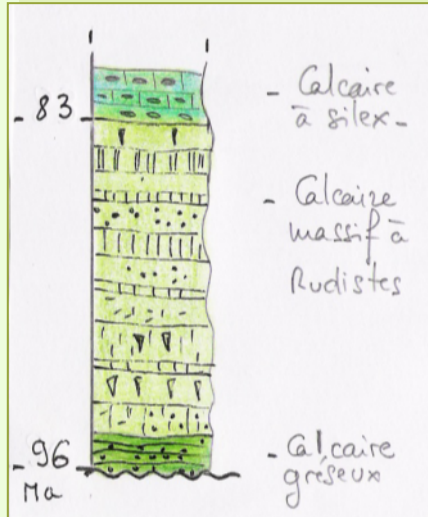 - Calcaire
à silex -
- 83
- Calcaire
massif à
Rudistes
- 96
Ma
- Calcaire
gréseux